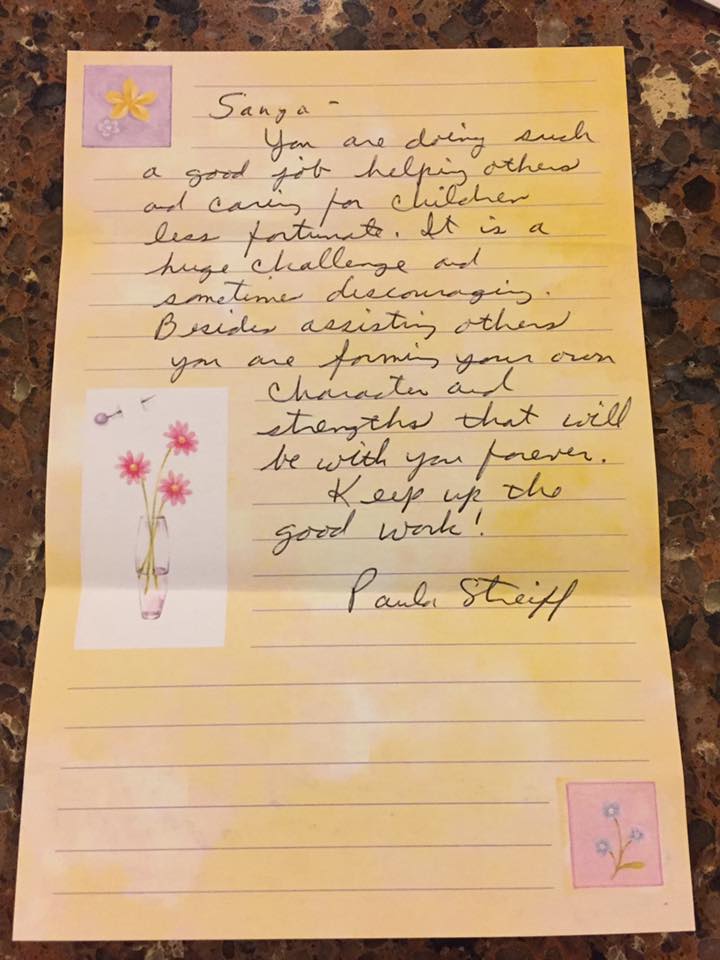 Sanya -
You are doing such
a good job helping others
and caring for children
less fortunate. It is a
huge challenge and
sometimes discouraging.
Besides assisting others
you are forming your own
character and
strengths that will
be with you forever.
Keep up the
good work!
Paula Streiff